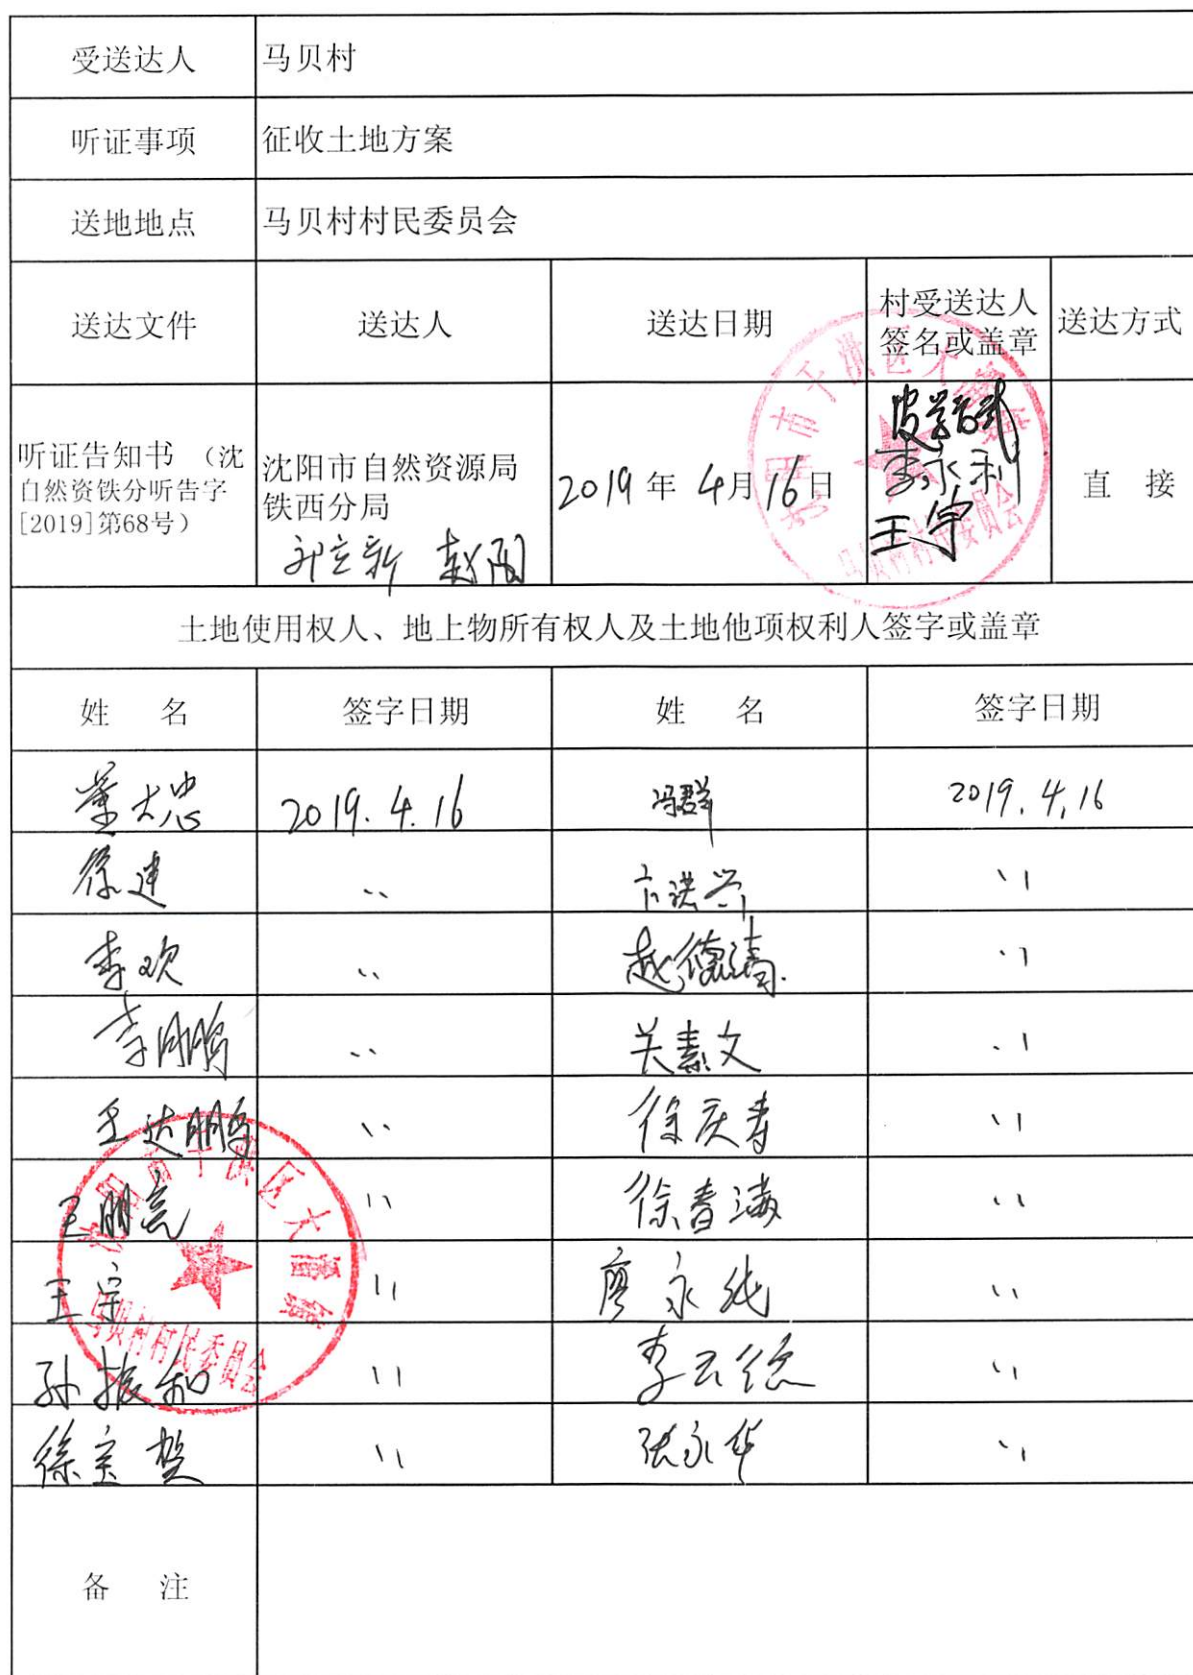 受送达人 马贝村
听证事项 征收土地方案
送地地点 马贝村村民委员会
送达文件 送达人 送达日期 村受送达人 送达方式
签名或盖章
听证告知书 （沈
自然资铁分听告字
[2019]第68号）
沈阳市自然资源局
铁西分局
赵阳
2019年 4月16日
李永利
王宇
直 接
土地使用权人、地上物所有权人及土地他项权利人签字或盖章
姓 名 签字日期 姓 名 签字日期
董大忠 2019.4.16 冯群 2019.4.16
徐建 〃 〃
李欢 〃 赵德清 〃
李朋鹏 〃 关素文 〃
王达鹏 〃 徐庆寿 〃
王朋亮 〃 徐春满 〃
王宇 〃 廖永纯 〃
孙振和 〃 李云德 〃
徐宝贺 〃 张永华 〃
沈阳市于洪区大潘镇
马贝村村民委员会
备 注